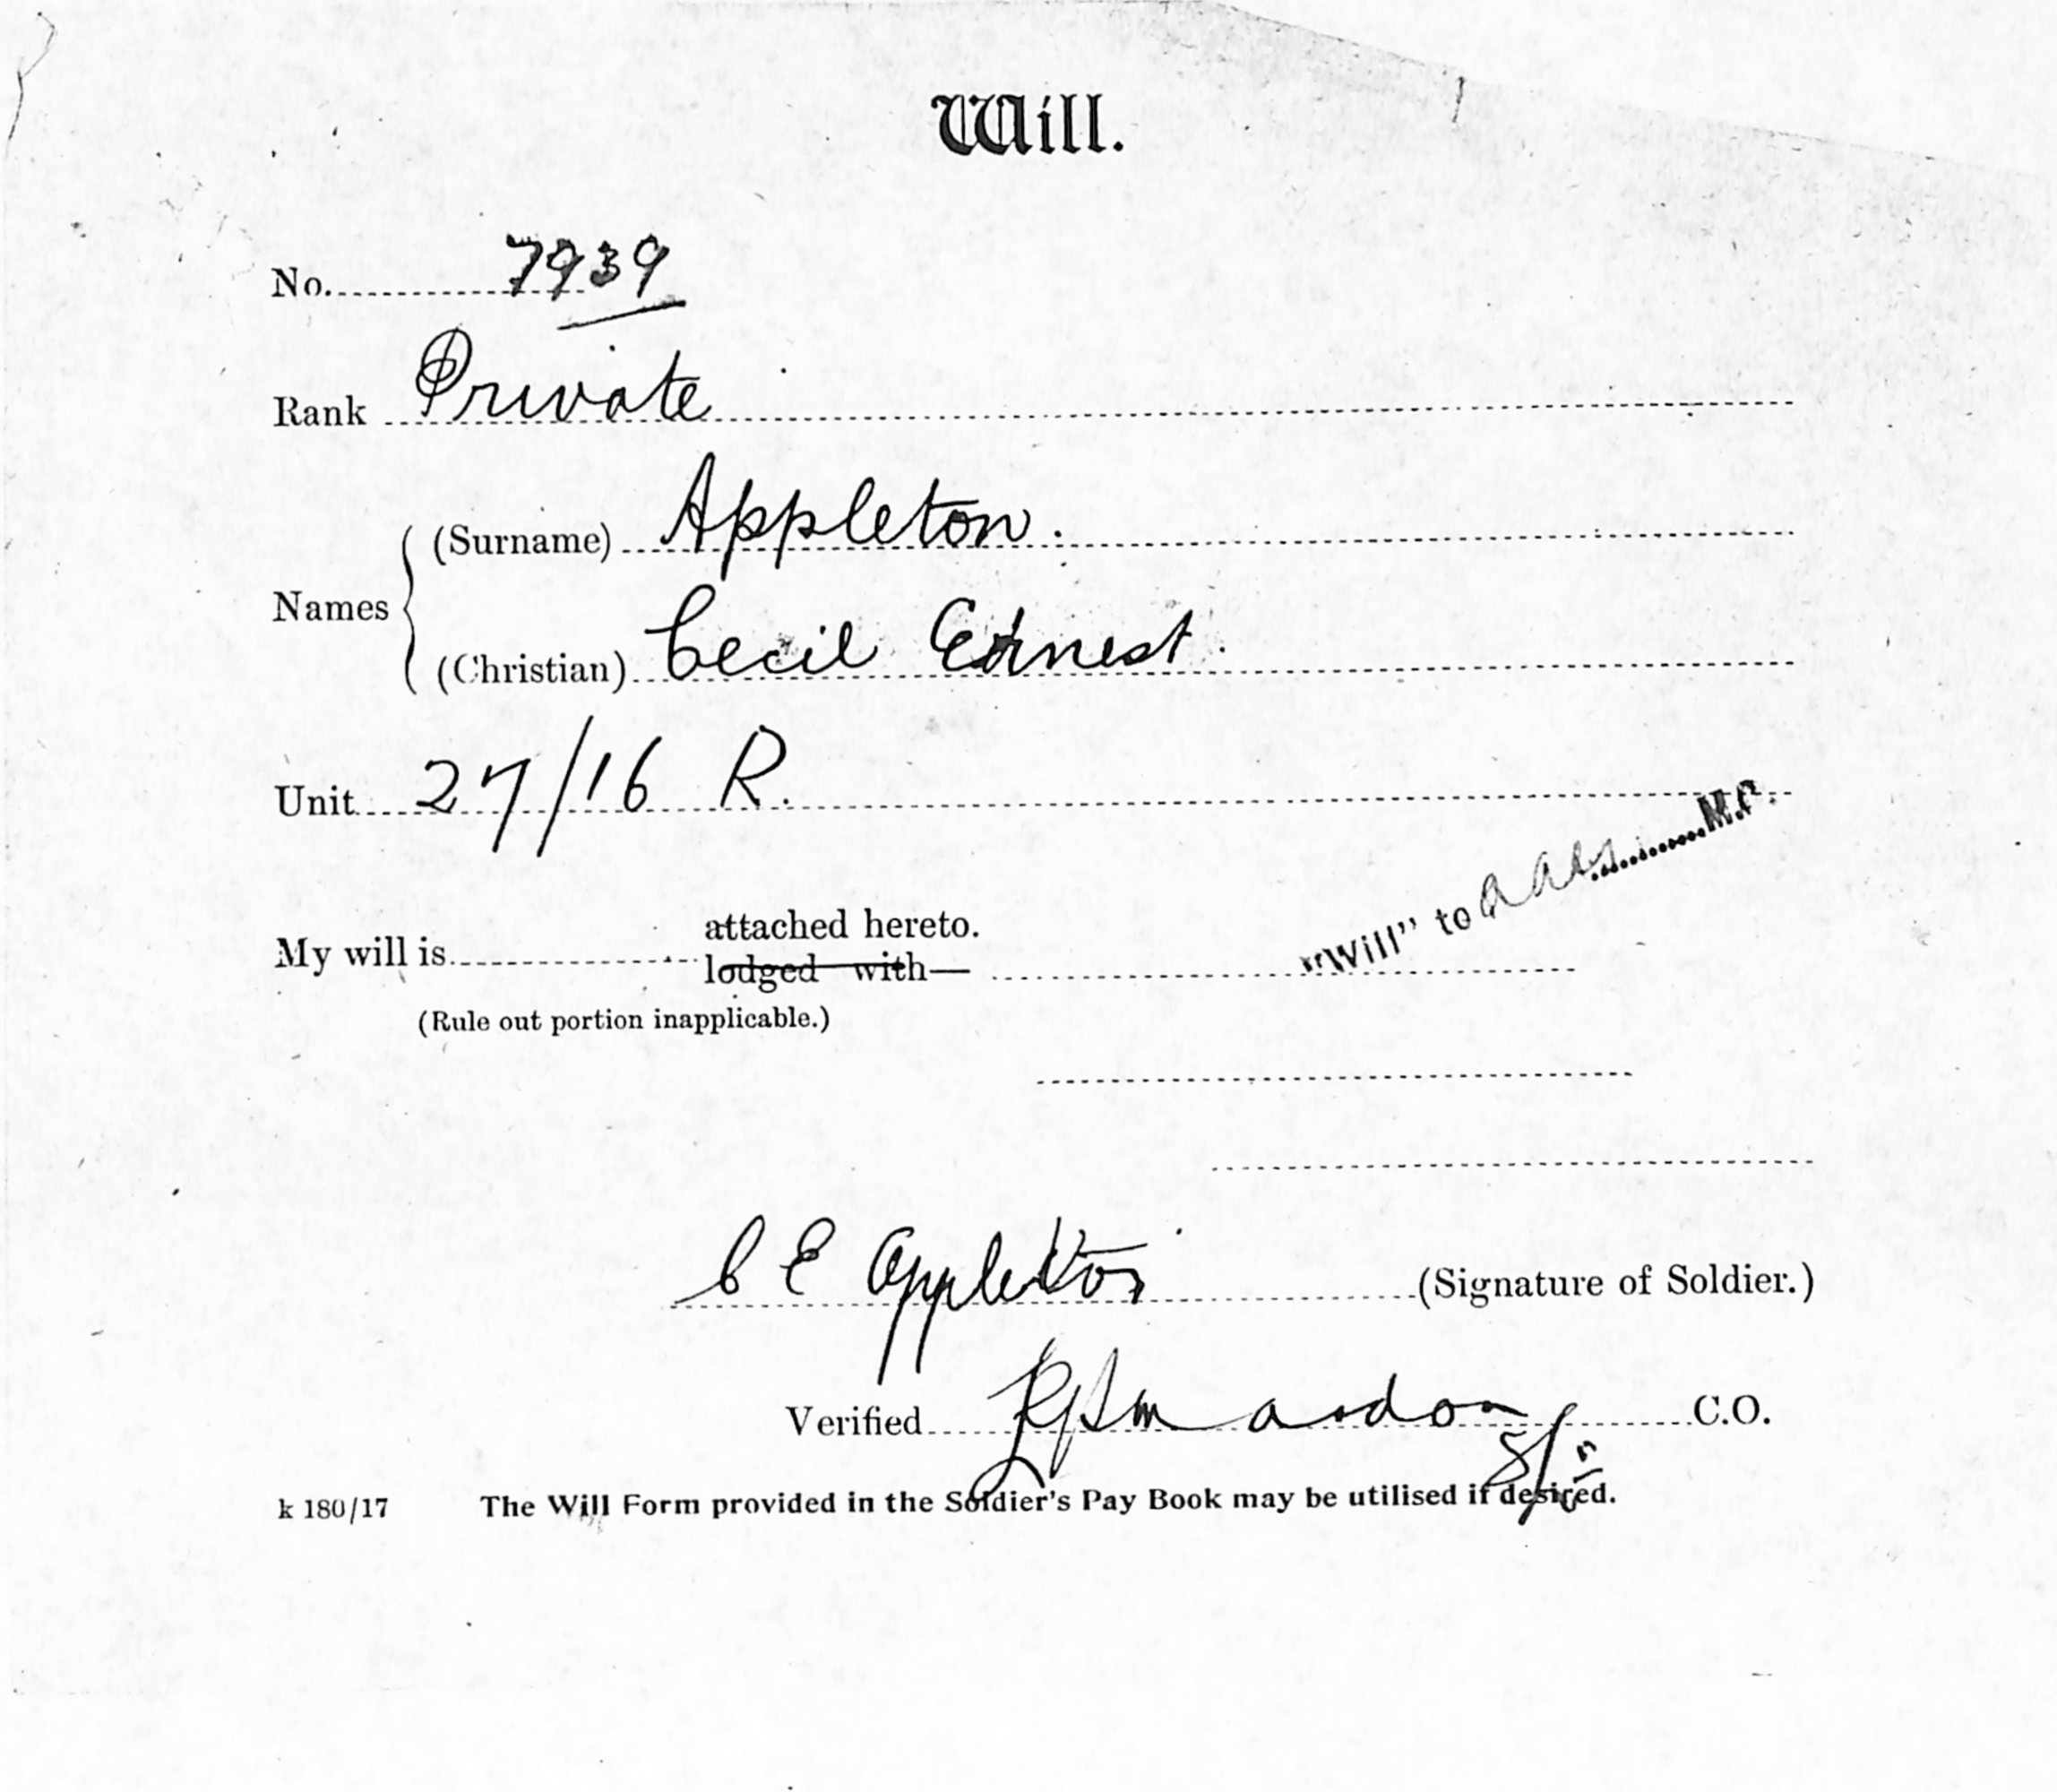 Will.
No. 7939
Rank Private
Names
(Surname) Appleton.
(Christian) Cecil Ernest.
Unit 27/16 R.
"Will" to M.P.
My will is attached hereto.
lodged with—
(Rule out portion inapplicable.)
C E Appleton (Signature of Soldier.)
Verified C.O.
k 180/17 The Will Form provided in the Soldier's Pay Book may be utilised if desired.